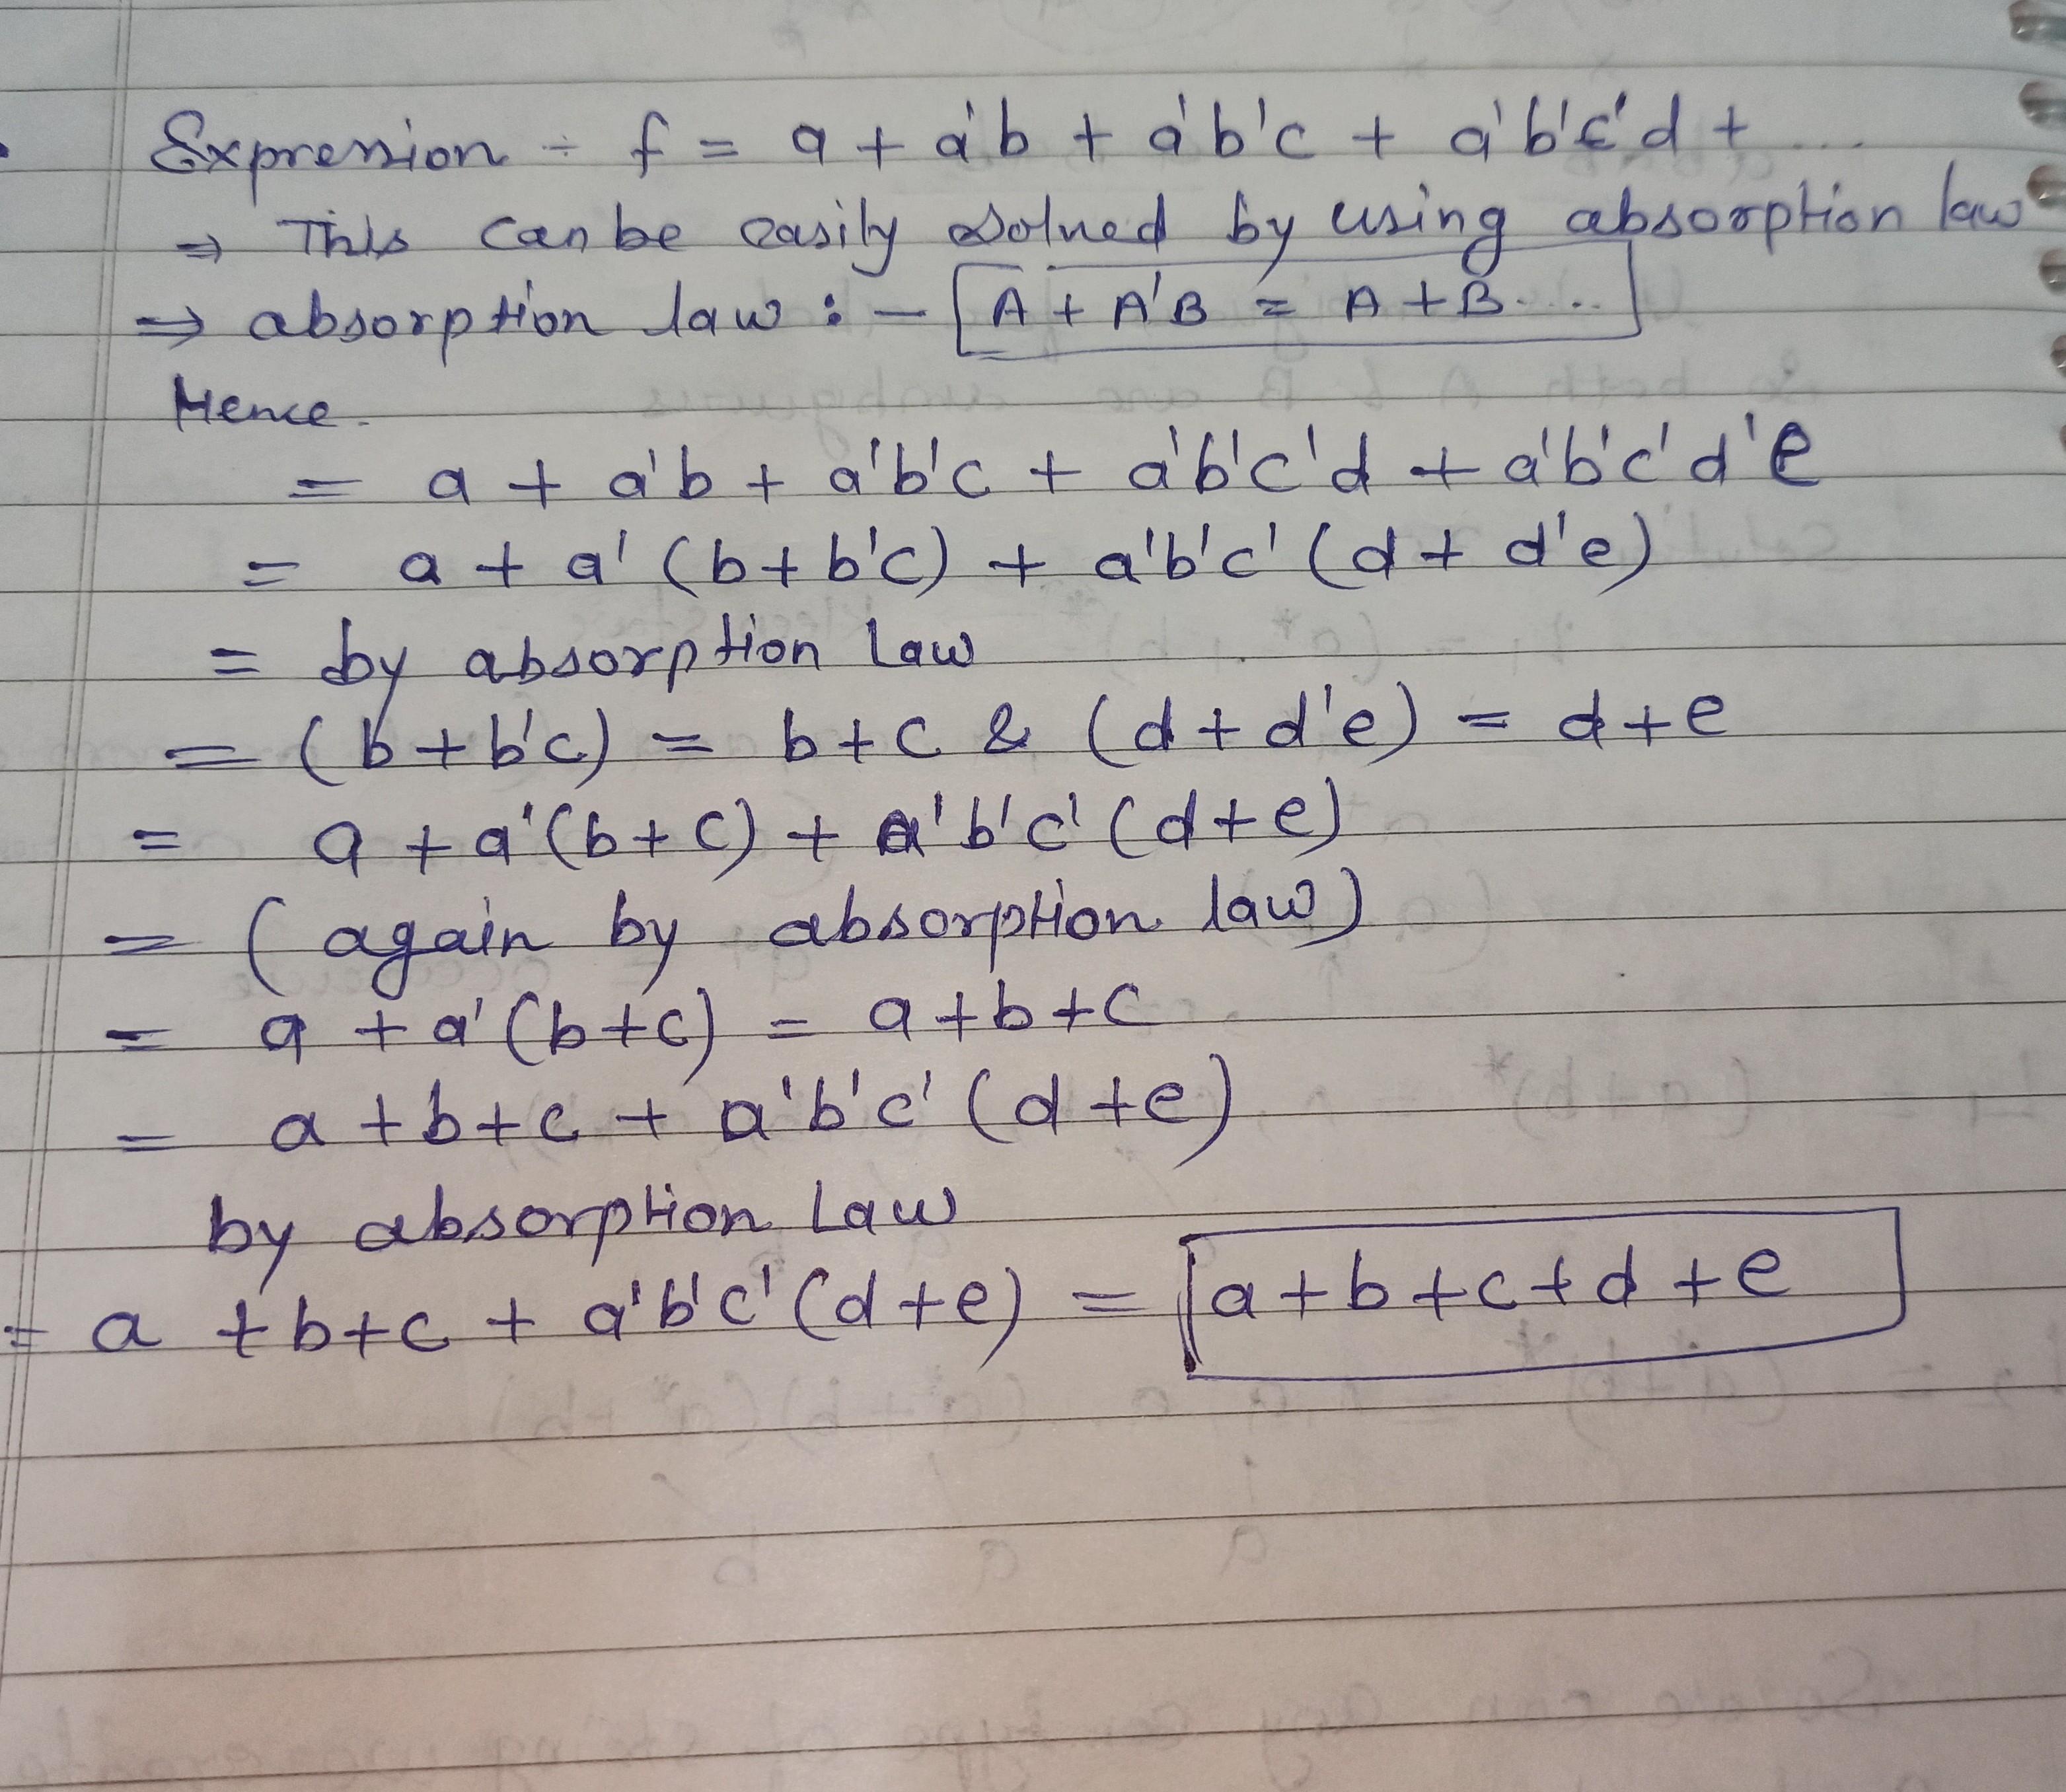 Expression ÷ f = a + a'b + a'b'c + a'b'c'd + ....
⇒ This can be easily solved by using absorption law
⇒ absorption law :- A + A'B = A + B....
Hence.
= a + a'b + a'b'c + a'b'c'd + a'b'c'd'e
= a + a' (b + b'c) + a'b'c' (d + d'e)
= by absorption law
= (b + b'c) = b + c & (d + d'e) = d + e
= a + a' (b + c) + a'b'c' (d + e)
= (again by absorption law)
= a + a' (b + c) = a + b + c
= a + b + c + a'b'c' (d + e)
by absorption Law
= a + b + c + a'b'c' (d + e) = a + b + c + d + e